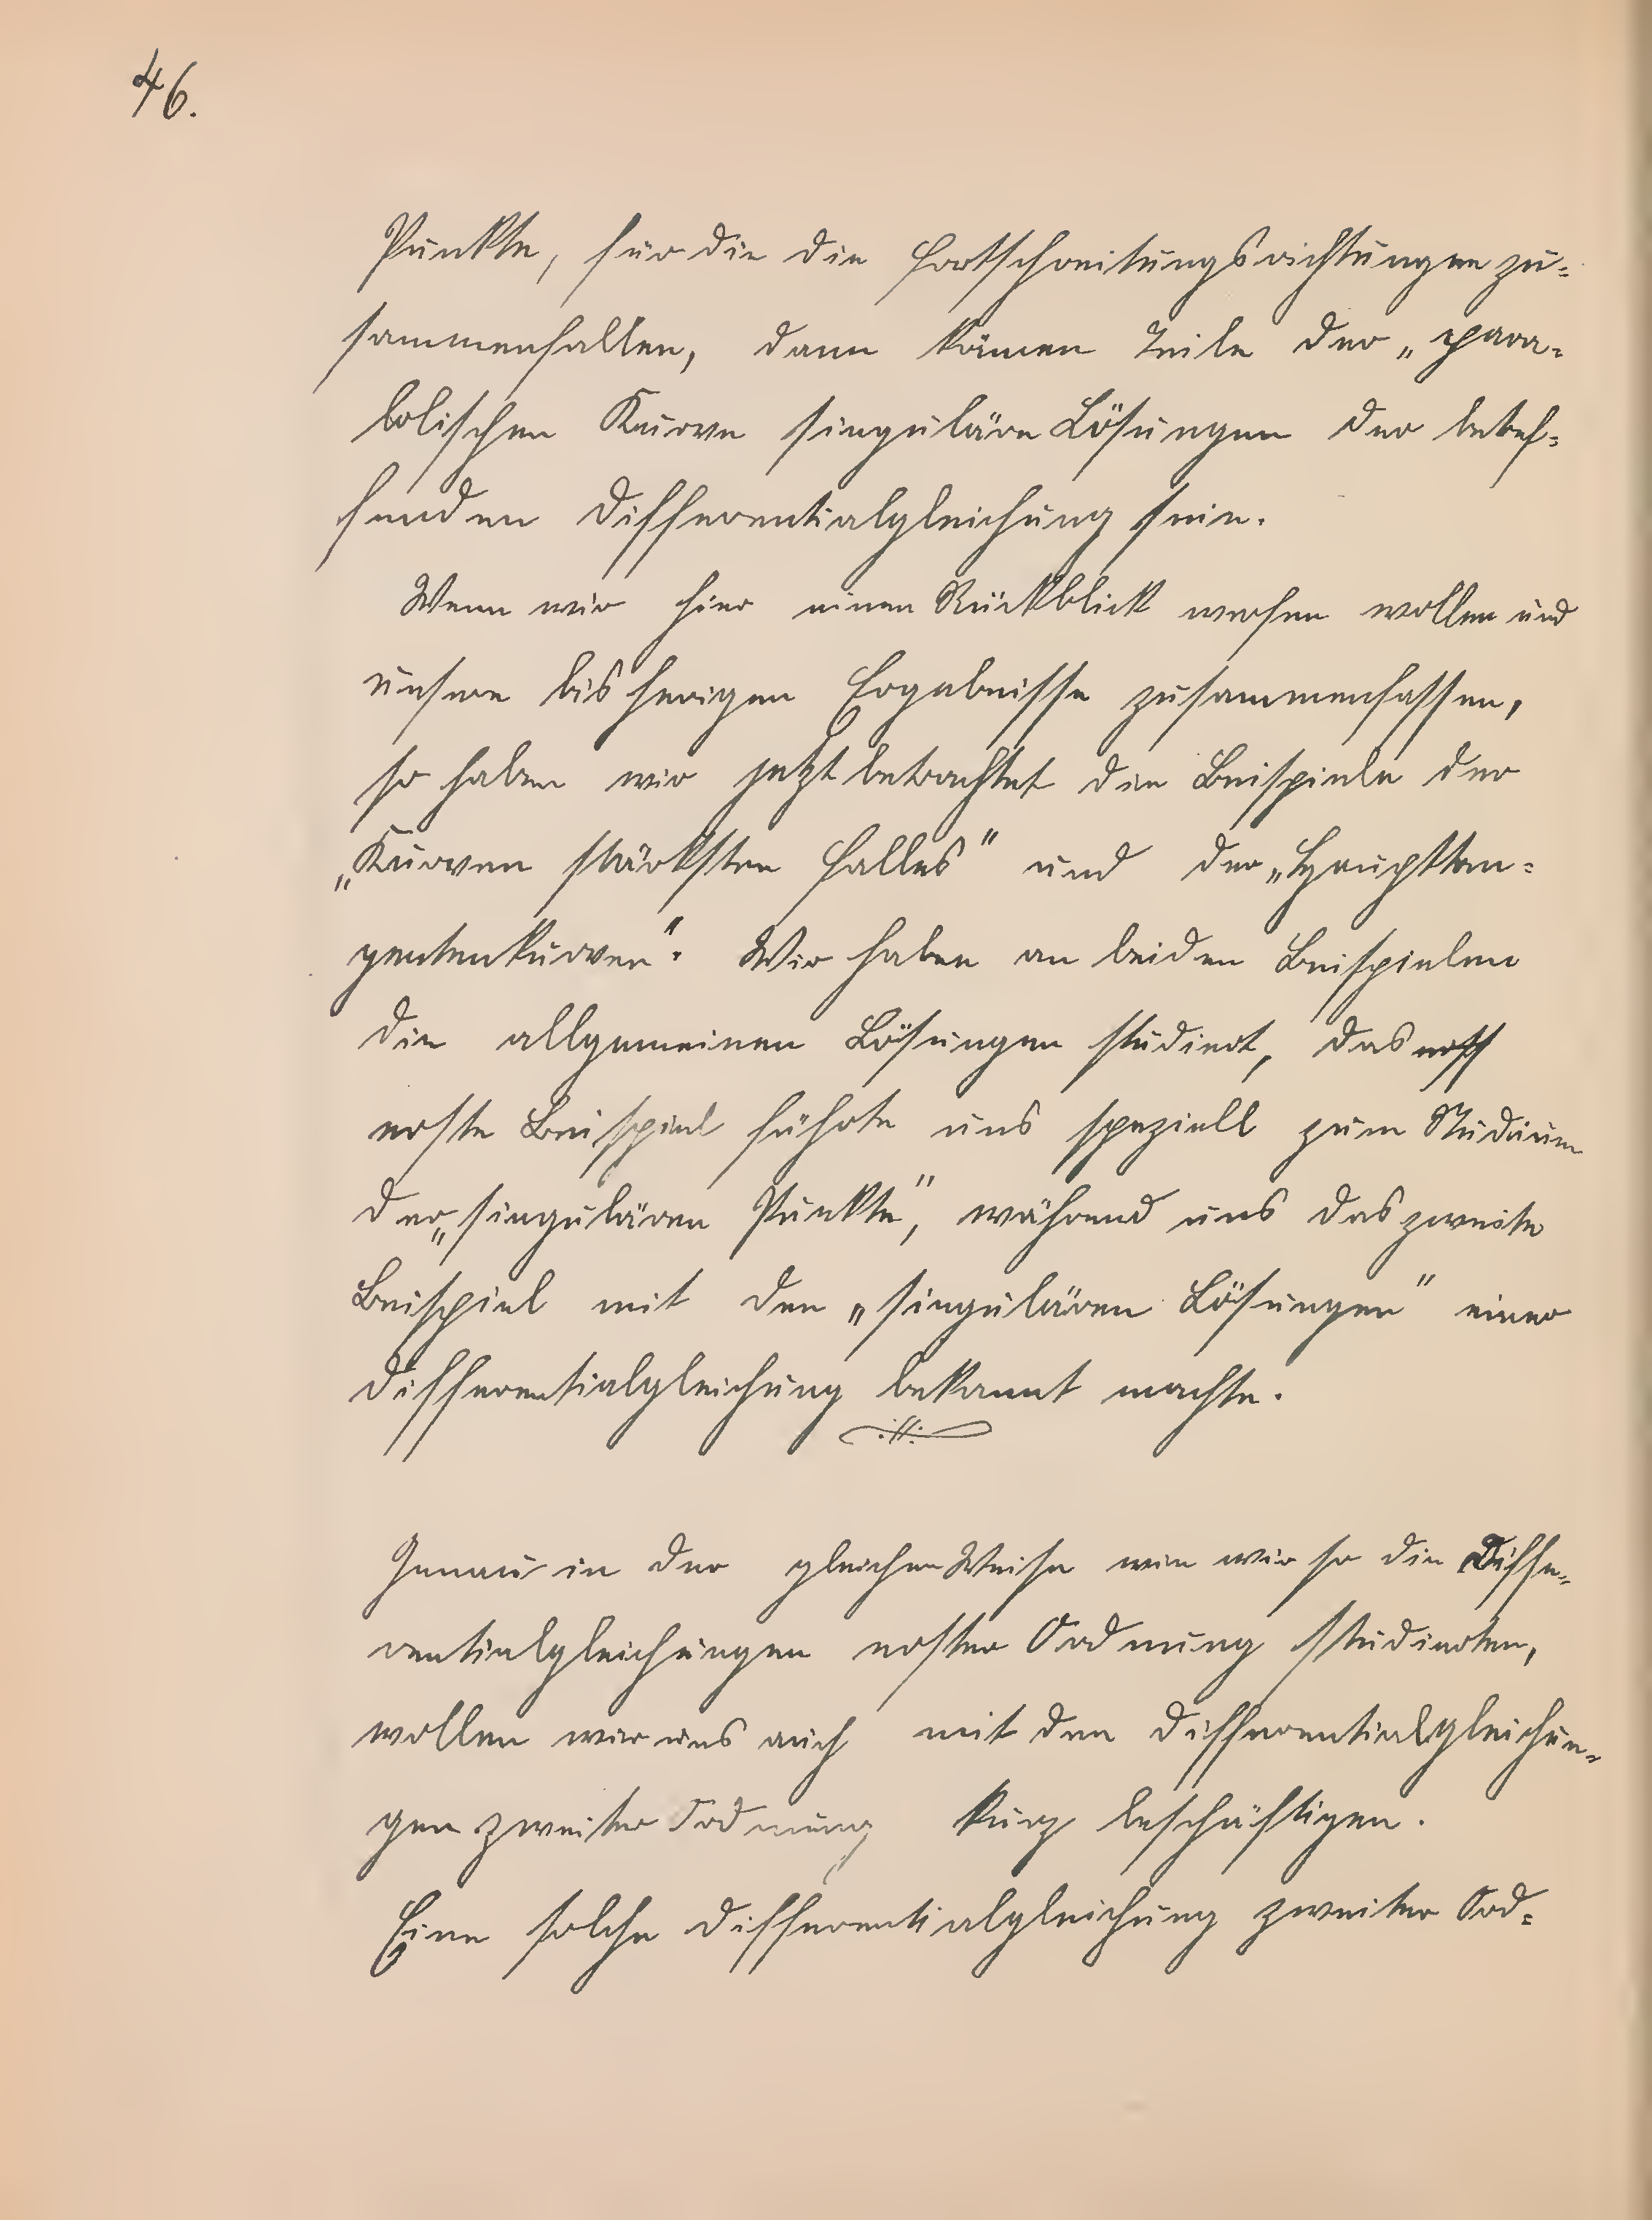 46.
Punkte, für die die Fortschreitungsrichtungen zu-
sammenfallen, dann kämen Teile der „para-
bolischen Kurve singuläre Lösungen der betref-
fenden Differentialgleichung sein.
Wenn wir hier einen Rückblick werfen wollen und
unsere bisherigen Ergebnisse zusammenfassen,
so haben wir jetzt betrachtet die Beispiele der
„Kurven stärksten Falles" und der „Haupttan-
gentenkurven". Wir haben an beiden Beispielen
die allgemeinen Lösungen studiert, das
erste Beispiel führte uns speziell zum Studium
der „singulären Punkte", während uns das zweite
Beispiel mit den „singulären Lösungen" einer
Differentialgleichung bekannt machte.
Genau in der gleichen Weise wie wir so die Diffe-
rentialgleichungen erster Ordnung studierten,
wollen wir uns auch mit den Differentialgleichun-
gen zweiter Ordnung kurz beschäftigen.
Eine solche Differentialgleichung zweiter Ord-